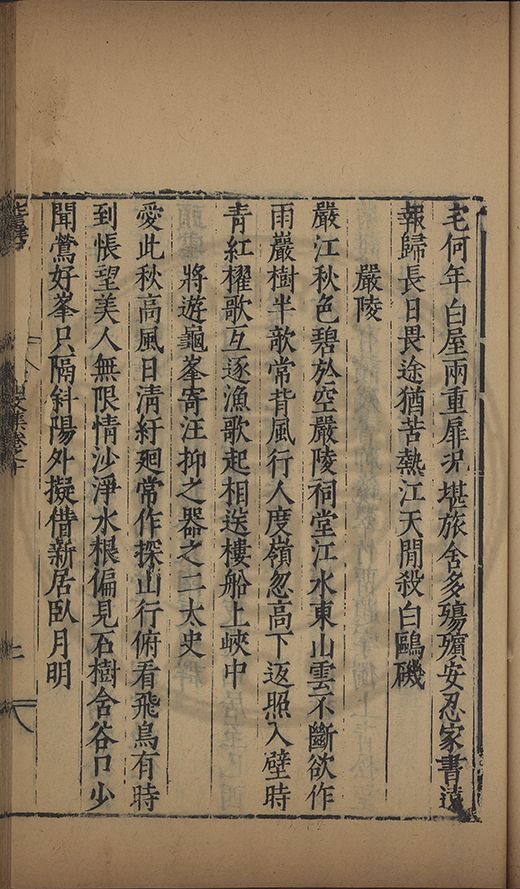 宅何年白屋兩重扉况堪旅舍多殤殯安忍家書遠
報歸長日畏途猶苦熱江天閒殺白鷗磯
嚴陵
嚴江秋色碧於空嚴陵祠堂江水東山雲不斷欲作
雨巖樹半欹常背風行人度嶺忽高下返照入壁時
青紅櫂歌互逐漁歌起相送樓船上峽中
將遊龜峯寄汪抑之器之二太史
愛此秋高風日清紆廻常作探山行俯看飛鳥有時
到悵望美人無限情沙淨水根偏見石樹含谷口少
聞鶯好峯只隔斜陽外擬借新居臥月明